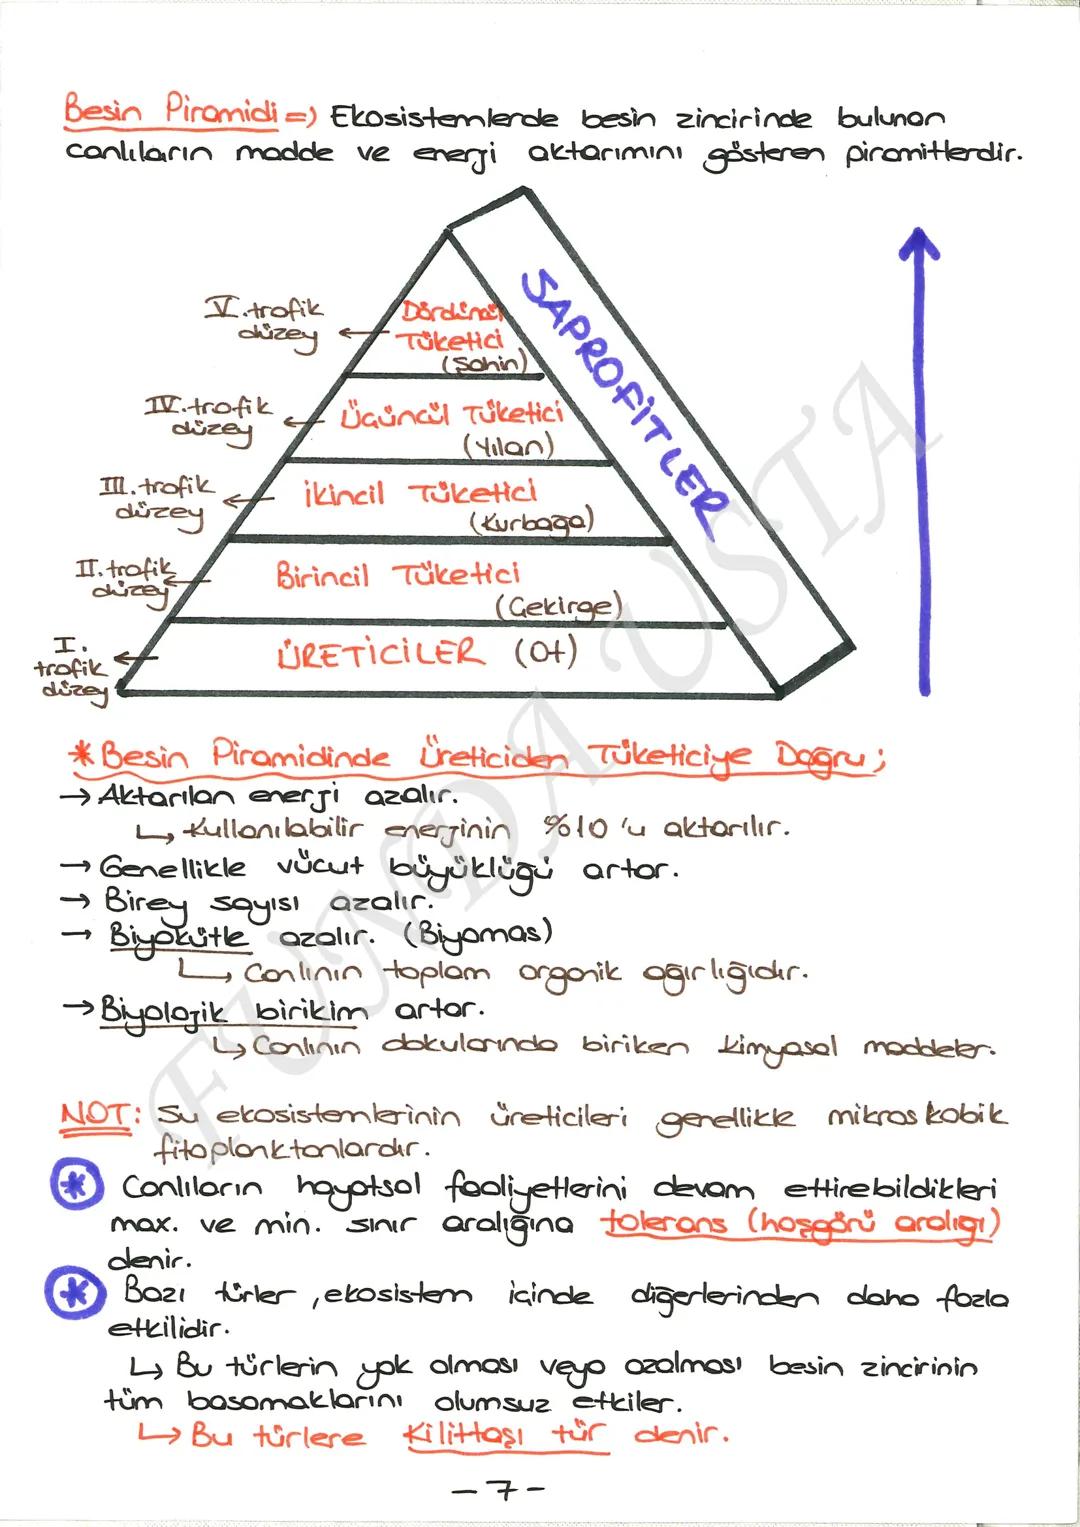 Besin Piramidi => Ekosistemlerde besin zincirinde bulunan
canlıların madde ve enerji aktarımını gösteren piramitlerdir.
SAPROFİTLER
V. trofik
düzey
Dördüncül
Tüketici
(Şahin)
IV. trofik
düzey
Üçüncül Tüketici
(Yılan)
III. trofik
düzey
İkincil Tüketici
(Kurbağa)
II. trofik
düzey
Birincil Tüketici
(Çekirge)
I.
trofik
düzey
ÜRETİCİLER (Ot)
* Besin Piramidinde Üreticiden Tüketiciye Doğru;
→ Aktarılan enerji azalır.
↳ Kullanılabilir enerjinin %10'u aktarılır.
→ Genellikle vücut büyüklüğü artar.
→ Birey sayısı azalır.
→ Biyokütle azalır. (Biyomas)
↳ Canlının toplam organik ağırlığıdır.
→ Biyolojik birikim artar.
↳ Canlının dokularında biriken kimyasal maddeler.
NOT: Su ekosistemlerinin üreticileri genellikle mikroskobik
fitoplanktonlardır.
* Canlıların hayatsal faaliyetlerini devam ettirebildikleri
max. ve min. sınır aralığına tolerans (hoşgörü aralığı)
denir.
* Bazı türler, ekosistem içinde diğerlerinden daha fazla
etkilidir.
↳ Bu türlerin yok olması veya azalması besin zincirinin
tüm basamaklarını olumsuz etkiler.
↳ Bu türlere Kilittaşı tür denir.
-7-
FUNDA USTA